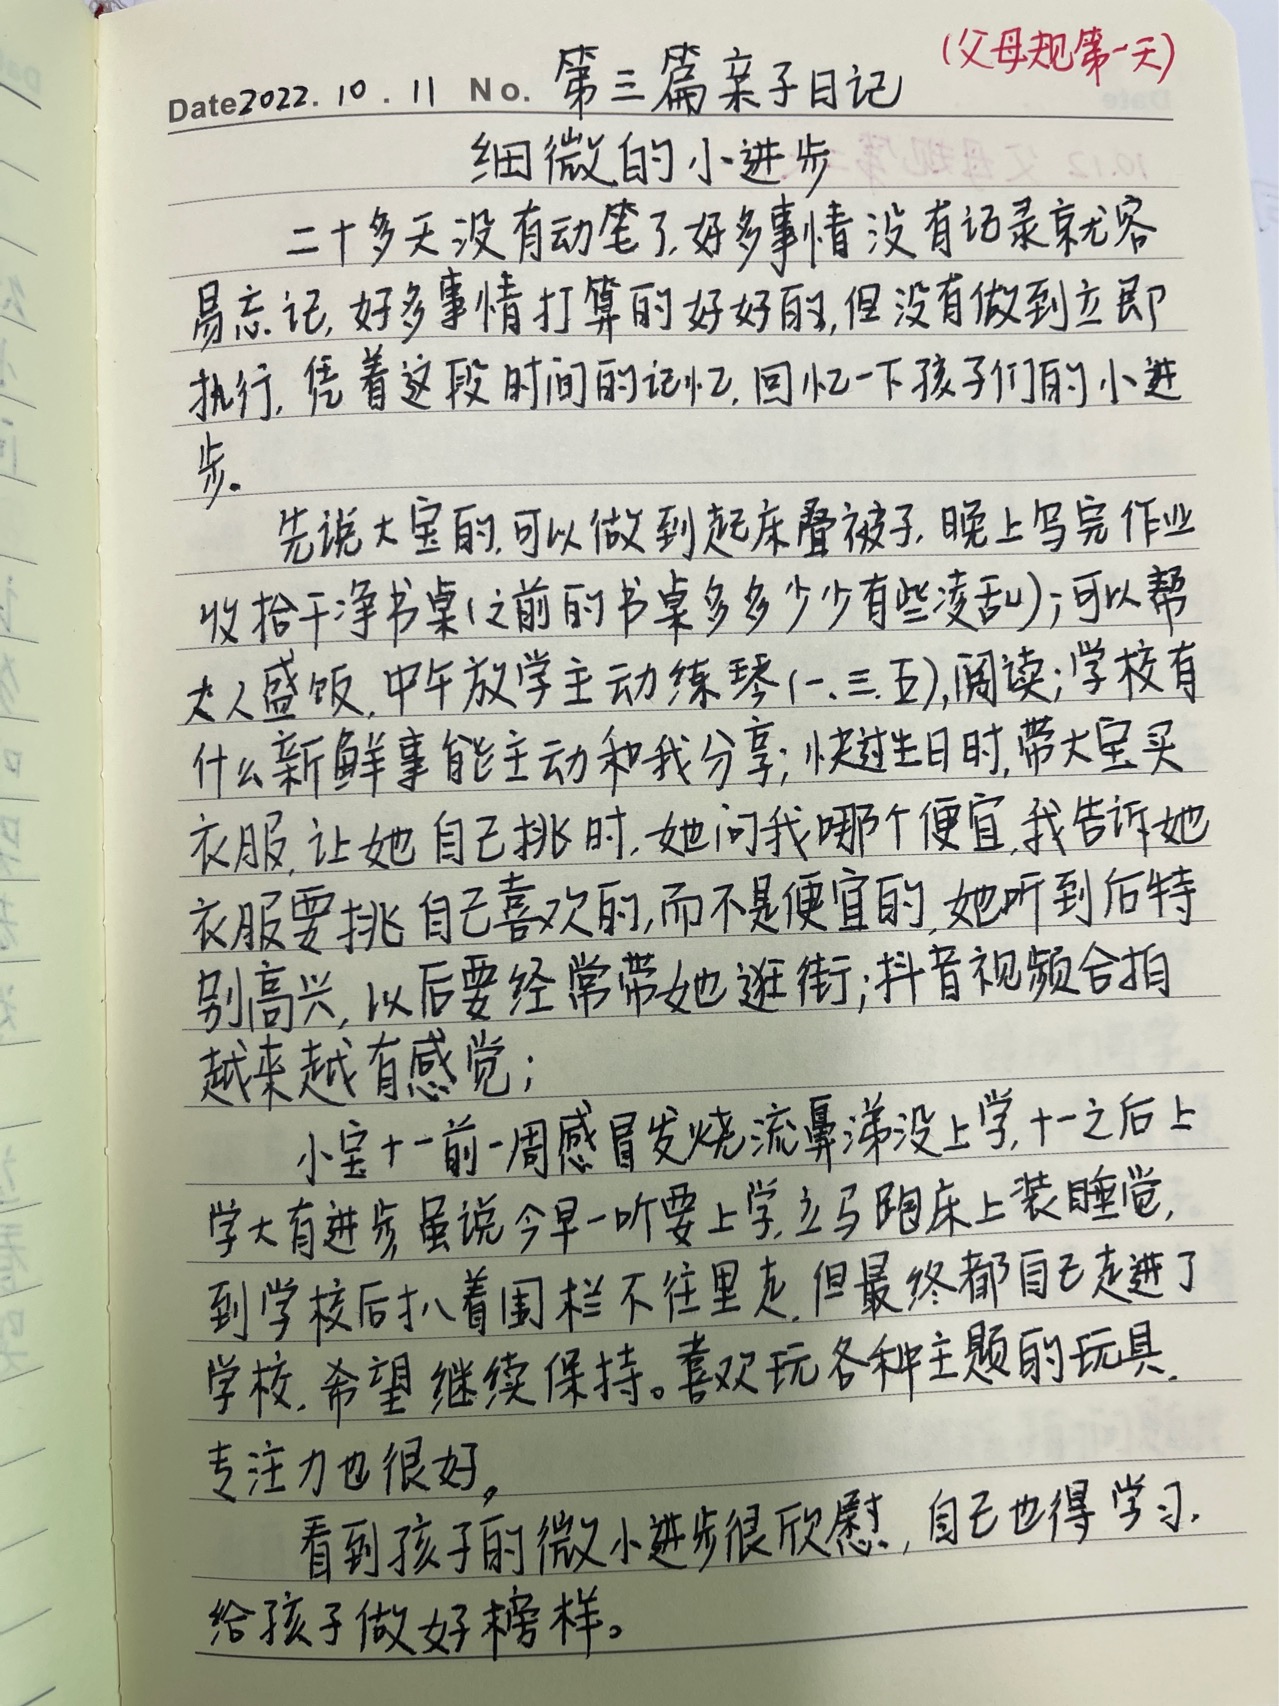 (父母规第一天)
Date 2022.10.11 No. 第三篇亲子日记
细微的小进步
二十多天没有动笔了,好多事情没有记录就容
易忘记,好多事情打算的好好的,但没有做到立即
执行,凭着这段时间的记忆,回忆一下孩子们的小进
步.
先说大宝的,可以做到起床叠被子,晚上写完作业
收拾干净书桌(之前的书桌多多少少有些凌乱);可以帮
大人盛饭,中午放学主动练琴(一.三.五),阅读;学校有
什么新鲜事能主动和我分享;快过生日时,带大宝买
衣服,让她自己挑时,她问我哪个便宜,我告诉她
衣服要挑自己喜欢的,而不是便宜的,她听到后特
别高兴,以后要经常带她逛街;抖音视频合拍
越来越有感觉;
小宝十一前一周感冒发烧流鼻涕没上学,十一之后上
学大有进步,虽说今早一听要上学,立马跑床上装睡觉,
到学校后扒着围栏不往里走,但最终都自己走进了
学校,希望继续保持。喜欢玩各种主题的玩具,
专注力也很好。
看到孩子的微小进步很欣慰,自己也得学习,
给孩子做好榜样。